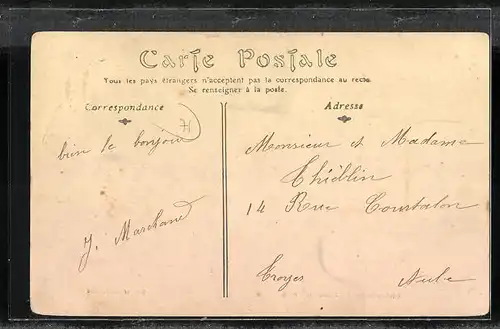 Carte Postale
Tous les pays étrangers n'acceptent pas la correspondance au recto
Se renseigner à la poste.
Correspondance
Adresse
bien le bonjour
J. Marchand
Monsieur et Madame
Thiéblin
14 Rue Courtalon
Troyes Aube